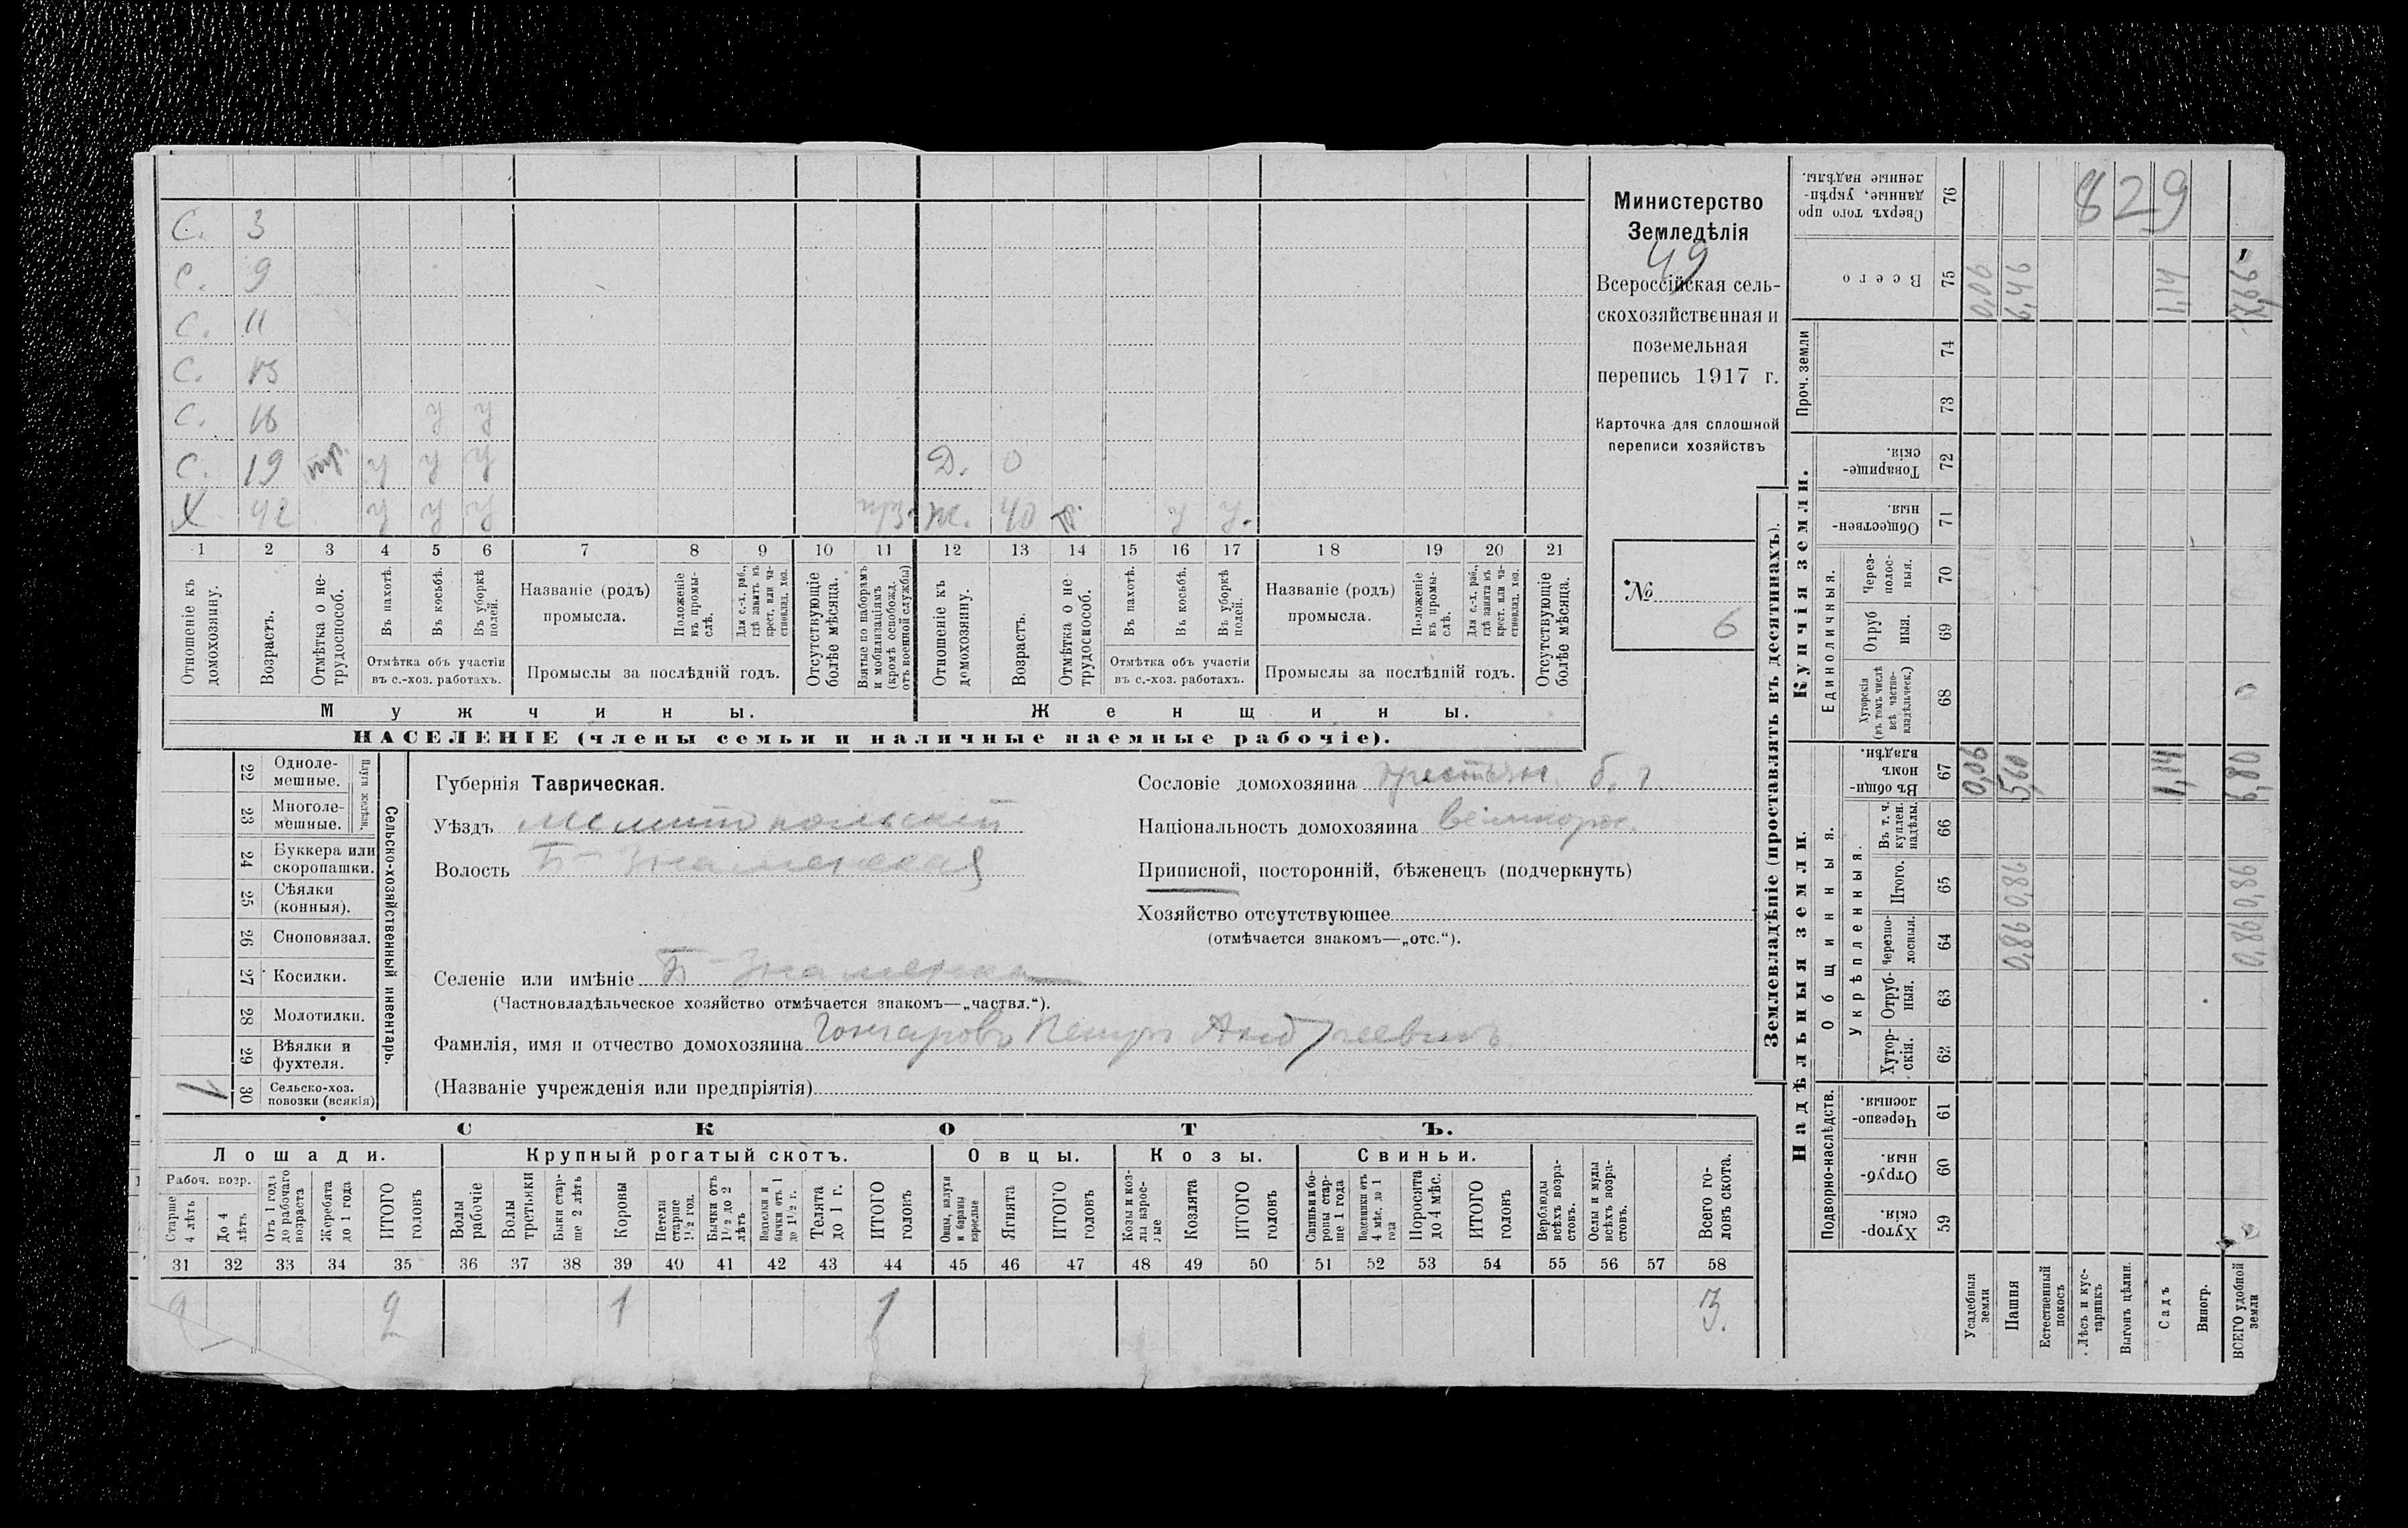 С. 3
С. 9
С. 11
С. 13
С. 16 у у
С. 19 у у у Д. 0
Х 42 у у у Ж. 40 у у.
1 2 3 4 5 6 7 8 9 10 11 12 13 14 15 16 17 18 19 20 21
Отношеніе къ домохозяину.
Возрастъ.
Отмѣтка о не-трудоспособ.
Въ пахотѣ.
Въ косьбѣ.
Въ уборкѣ полей.
Отмѣтка объ участіи въ с.-хоз. работахъ.
Названіе (родъ) промысла.
Положеніе въ промы-слѣ.
Для с.-х. раб., гдѣ занятъ въ крест. или ча-стновлад. хоз.
Промыслы за послѣдній годъ.
Отсутствующіе болѣе мѣсяца.
Взятые по наборамъ и мобилизаціямъ (кромѣ освобожд. отъ военной службы)
Отношеніе къ домохозяину.
Возрастъ.
Отмѣтка о не-трудоспособ.
Въ пахотѣ.
Въ косьбѣ.
Въ уборкѣ полей.
Отмѣтка объ участіи въ с.-хоз. работахъ.
Названіе (родъ) промысла.
Положеніе въ промы-слѣ.
Для с.-х. раб., гдѣ занята въ крест. или ча-стновлад. хоз.
Промыслы за послѣдній годъ.
Отсутствующіе болѣе мѣсяца.
Мужчины. Женщины.
НАСЕЛЕНІЕ (члены семьи и наличные наемные рабочіе).
Министерство
Земледѣлія
49
Всероссійская сель-
скохозяйственная и
поземельная
перепись 1917 г.
Карточка для сплошной
переписи хозяйствъ
№
6
22 Одноле-мешные.
23 Многоле-мешные.
Плуги желѣзн.
24 Буккера или скоропашки.
25 Сѣялки (конныя).
26 Сноповязал.
27 Косилки.
28 Молотилки.
29 Вѣялки и фухтеля.
30 Сельско-хоз. повозки (всякія)
1
Сельско-хозяйственный инвентарь.
Губернія Таврическая.
Уѣздъ Мелитопольскій
Волость Б-Знаменская
Селеніе или имѣніе Б-Знаменка
(Частновладѣльческое хозяйство отмѣчается знакомъ—„частвл.“).
Фамилія, имя и отчество домохозяина Гончаровъ Петръ Андреевичъ
(Названіе учрежденія или предпріятія)
Сословіе домохозяина крестьян. б. г.
Національность домохозяина великорос.
Приписной, посторонній, бѣженецъ (подчеркнуть)
Хозяйство отсутствующее
(отмѣчается знакомъ—„отс.“).
СКОТЪ.
Лошади. Крупный рогатый скотъ. Овцы. Козы. Свиньи.
Рабоч. возр.
Старше 4 лѣтъ
До 4 лѣтъ
Отъ 1 года до рабочаго возраста
Жеребята до 1 года
ИТОГО головъ
Волы рабочіе
Волы третьяки
Быки стар-ше 2 лѣтъ
Коровы
Нетели старше 1½ год.
Бычки отъ 1½ до 2 лѣтъ
бычки отъ 1 до 1½ г.
Телята до 1 г.
ИТОГО головъ
Овцы, валухи и бараны взрослые
Ягнята
ИТОГО головъ
Козы и коз-лы взрос-лые
Козлята
ИТОГО головъ
Свиньи и бо-ровы стар-ше 1 года
Подсвинки отъ 4 мѣс. до 1 года
Поросята до 4 мѣс.
ИТОГО головъ
Верблюды всѣхъ возра-стовъ.
Ослы и мулы всѣхъ возра-стовъ.
Всего го-ловъ скота.
31 32 33 34 35 36 37 38 39 40 41 42 43 44 45 46 47 48 49 50 51 52 53 54 55 56 57 58
2 2 1 1 3.
Землевладѣніе (проставлять въ десятинахъ).
Надѣльныя земли. Купчія земли. Проч. земли
Подворно-наслѣдств. Общинныя. Укрѣпленныя. Единоличныя.
Хутор-скія. 59
Отруб-ныя. 60
Черезпо-лосныя. 61
Хутор-скія. 62
Отруб-ныя. 63
Черезпо-лосныя. 64
Итого. 65
Въ т. ч. куплен. надѣлы. 66
Въ общи-номъ владѣн. 67
Хуторскія (въ томъ числѣ всѣ частно-владѣльческ.) 68
Отрубныя. 69
Через-полос-ныя. 70
Обществен-ныя. 71
Товарище-скія. 72
73
74
Всего 75
Сверхъ того про-данные, укрѣп-ленные надѣлы. 76
Усадебныя земли 0,06 0,06
Пашня 0,86 0,86 5,60 6,46
Естественный покосъ
Лѣсъ и кус-тарникъ
Выгонъ цѣлин.
Садъ 1,14 1,14
Виногр.
ВСЕГО удобной земли 0,86 0,86 6,80 0 7,66
829